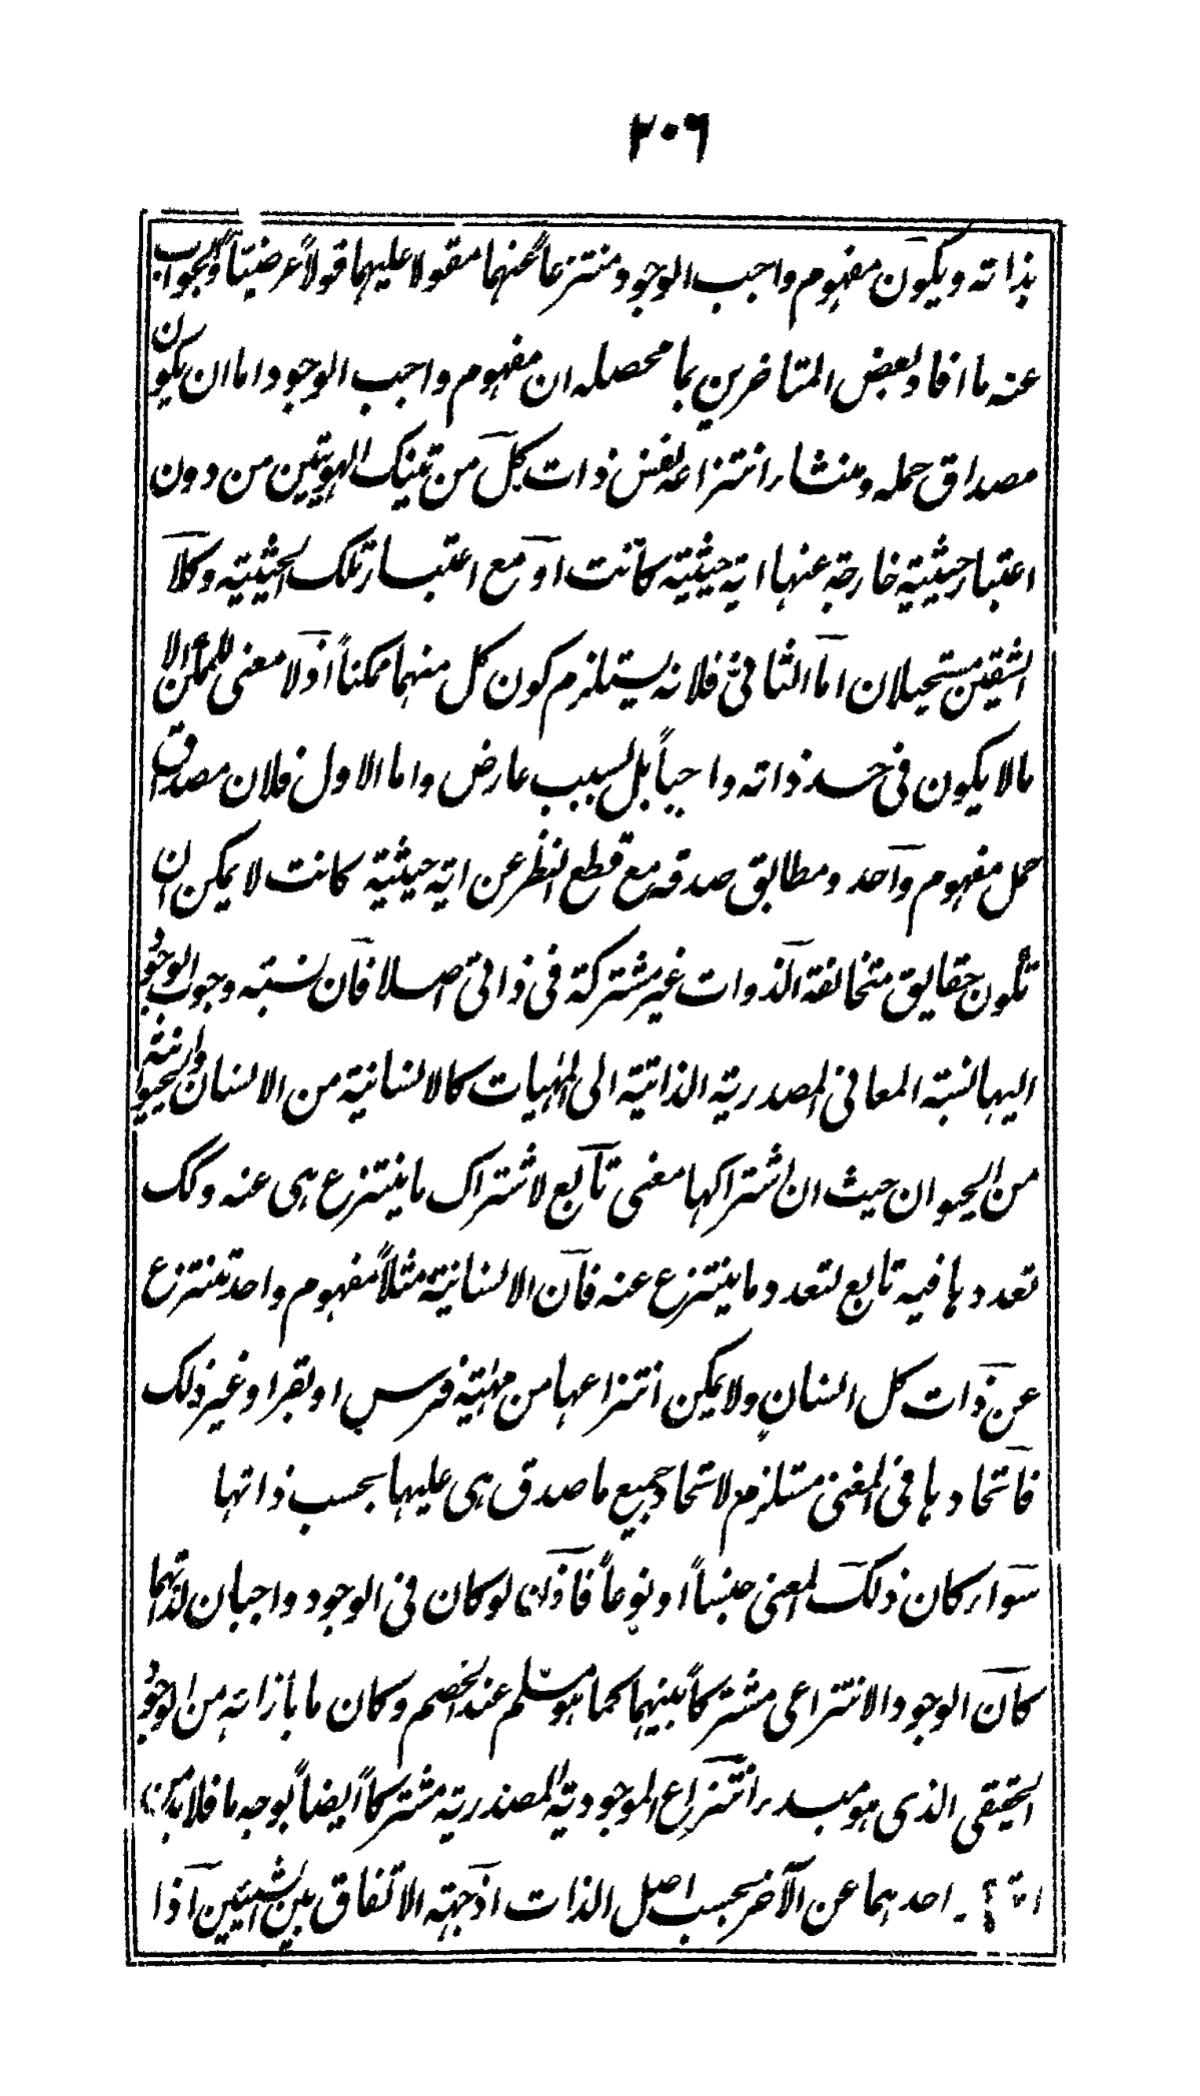 ٢٠٦
بذاته ويكون مفهوم واجب الوجود منتزعاً عنهما مقولا عليهما قولاً عرضيّاً والجواب
عنه ما افاد بعض المتاخرين بما محصله ان مفهوم واجب الوجود اما ان يكون
مصداق حمله ومنشاء انتزاعه نفس ذات كل من تينك الهويتين من دون
اعتبار حيثية خارجة عنها اية حيثية كانت او مع اعتبار تلك الحيثية وكلا
الشقين مستحيلان اما الثاني فلانه يستلزم كون كل منهما ممكناً اذ لا معنى للممكن الا
مالا يكون في حد ذاته واجباً بل بسبب عارض واما الاول فلان مصداق
حمل مفهوم واحد ومطابق صدقه مع قطع النظر عن اية حيثية كانت لا يمكن ان
تكون حقايق متخالفة الذوات غير مشتركة في ذاتي اصلا فان نسبة وجوب الوجود
اليها نسبة المعاني المصدرية الذاتية الى المهيات كالانسانية من الانسان والحيوانية
من الحيوان حيث ان اشتراكها معنى تابع لاشتراك ما ينتزع هى عنه وكك
تعددها فيه تابع لتعدد ما ينتزع عنه فان الانسانية مثلاً مفهوم واحد ينتزع
عن ذات كل انسان ولا يمكن انتزاعها من مهية فرس او بقر او غير ذلك
فاتحادها في المعنى مستلزم لاتحاد جميع ما صدق هى عليها بحسب ذاتها
سواء كان ذلك المعنى جنساً او نوعاً فاذن لو كان في الوجود واجبان لذاتهما
كان الوجود الانتزاعى مشتركاً بينهما كما هو مسلم عند الخصم وكان ما بازائه من الوجود
الحقيقى الذى هو مبدء انتزاع الموجودية المصدرية مشتركاً ايضاً بوجه ما فلابد من
احدهما عن الآخر بحسب اصل الذات اذ جهة الاتفاق بين الشيئين اذا